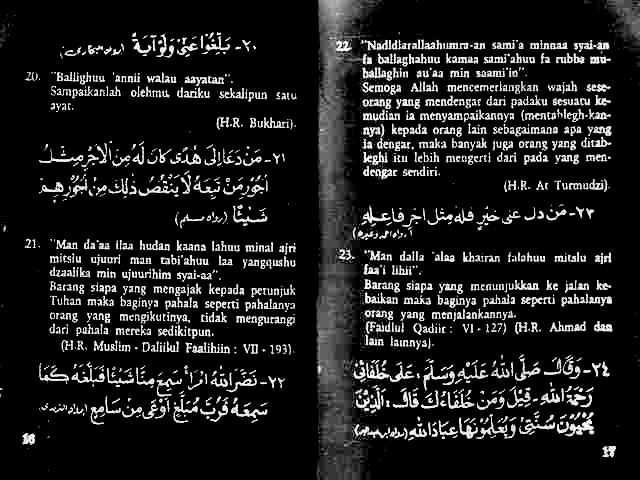 ٢٠- بَلِّغُوا عَنِّي وَلَوْ آيَةً (رواه البخاري)
20. "Ballighuu 'annii walau aayatan".
Sampaikanlah olehmu dariku sekalipun satu
ayat.
(H.R. Bukhari).
٢١- مَنْ دَعَا إِلَى هُدًى كَانَ لَهُ مِنَ الْأَجْرِ مِثْلُ
أُجُورِ مَنْ تَبِعَهُ لَا يَنْقُصُ ذٰلِكَ مِنْ أُجُورِهِمْ
شَيْئًا (رواه مسلم)
21. "Man da'aa ilaa hudan kaana lahuu minal ajri
mitslu ujuuri man tabi'ahuu laa yangqushu
dzaalika min ujuurihim syai-aa".
Barang siapa yang mengajak kepada petunjuk
Tuhan maka baginya pahala seperti pahalanya
orang yang mengikutinya, tidak mengurangi
dari pahala mereka sedikitpun.
(H.R. Muslim - Daliilul Faalihiin : VII - 193).
٢٢- نَضَّرَ اللهُ امْرَأً سَمِعَ مِنَّا شَيْئًا فَبَلَّغَهُ كَمَا
سَمِعَهُ فَرُبَّ مُبَلَّغٍ أَوْعَى مِنْ سَامِعٍ (رواه الترمذي)
16
22. "Nadldiarallaahumra-an sami'a minnaa syai-an
fa ballaghahuu kamaa sami'ahuu fa rubba mu-
ballaghin au'aa min saami'in".
Semoga Allah mencemerlangkan wajah sese-
orang yang mendengar dari padaku sesuatu ke-
mudian ia menyampaikannya (mentablegh-kan-
nya) kepada orang lain sebagaimana apa yang
ia dengar, maka banyak juga orang yang ditab-
leghi itu lebih mengerti dari pada yang men-
dengar sendiri.
(H.R. At Turmudzi).
٢٣- مَنْ دَلَّ عَلَى خَيْرٍ فَلَهُ مِثْلُ أَجْرِ فَاعِلِهِ
(رواه احمد وغيره)
23. "Man dalla 'alaa khairan falahuu mitslu ajri
faa'i lihii".
Barang siapa yang menunjukkan ke jalan ke-
baikan maka baginya pahala seperti pahalanya
orang yang menjalankannya.
(Faidlul Qadiir : VI - 127) (H.R. Ahmad dan
lain lainnya).
٢٤- وَقَالَ صَلَّى اللهُ عَلَيْهِ وَسَلَّمَ : عَلَى خُلَفَائِي
رَحْمَةُ اللهِ - قِيْلَ وَمَنْ خُلَفَاءُكَ قَالَ : الَّذِيْنَ
يُحْيُوْنَ سُنَّتِي وَيُعَلِّمُوْنَهَا عِبَادَ اللهِ
17